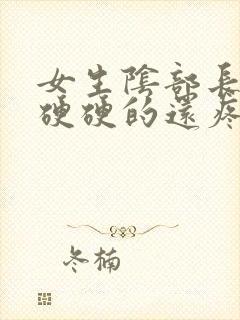 女生陰部長
硬硬的還疼
冬楠